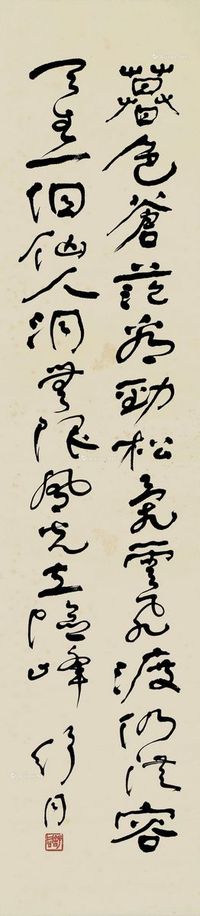 暮色苍茫看劲松乱云飞渡仍从容
天生一個仙人洞無限風光在險峰
舒同